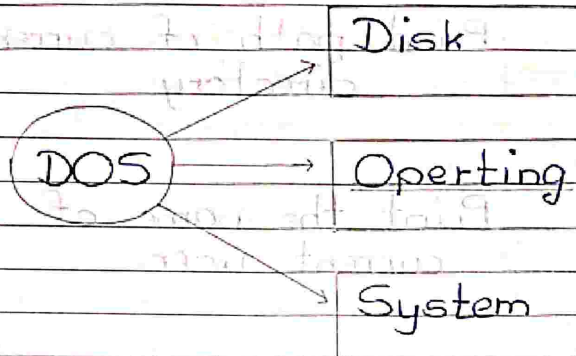 Disk
DOS
Operting
System